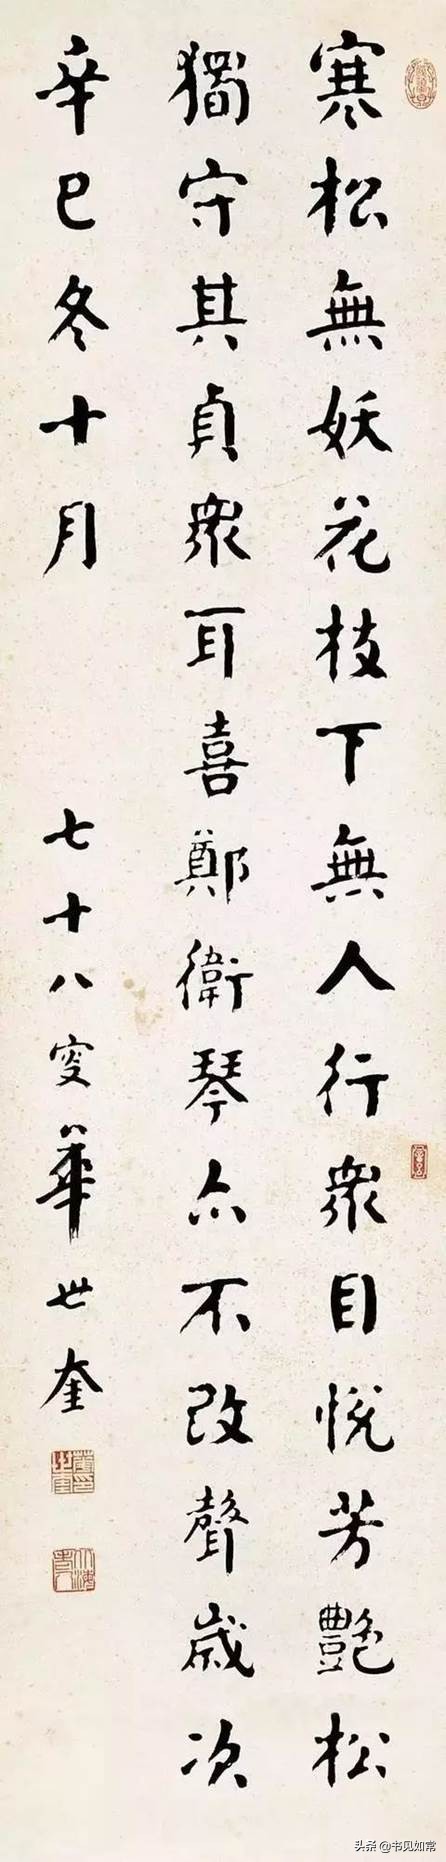 寒松無妖花枝下無人行衆目悅芳艷松
獨守其貞衆耳喜鄭衛琴亦不改聲歲次
辛巳冬十月
七十八叟華世奎
头条 @书见如常